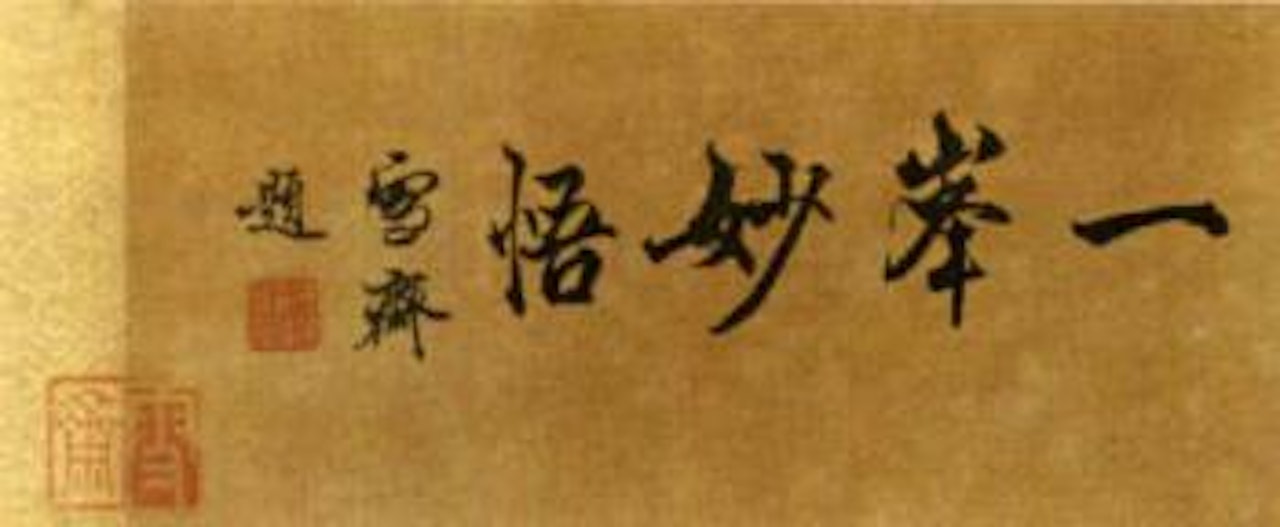 一峯妙悟
雪齋
題